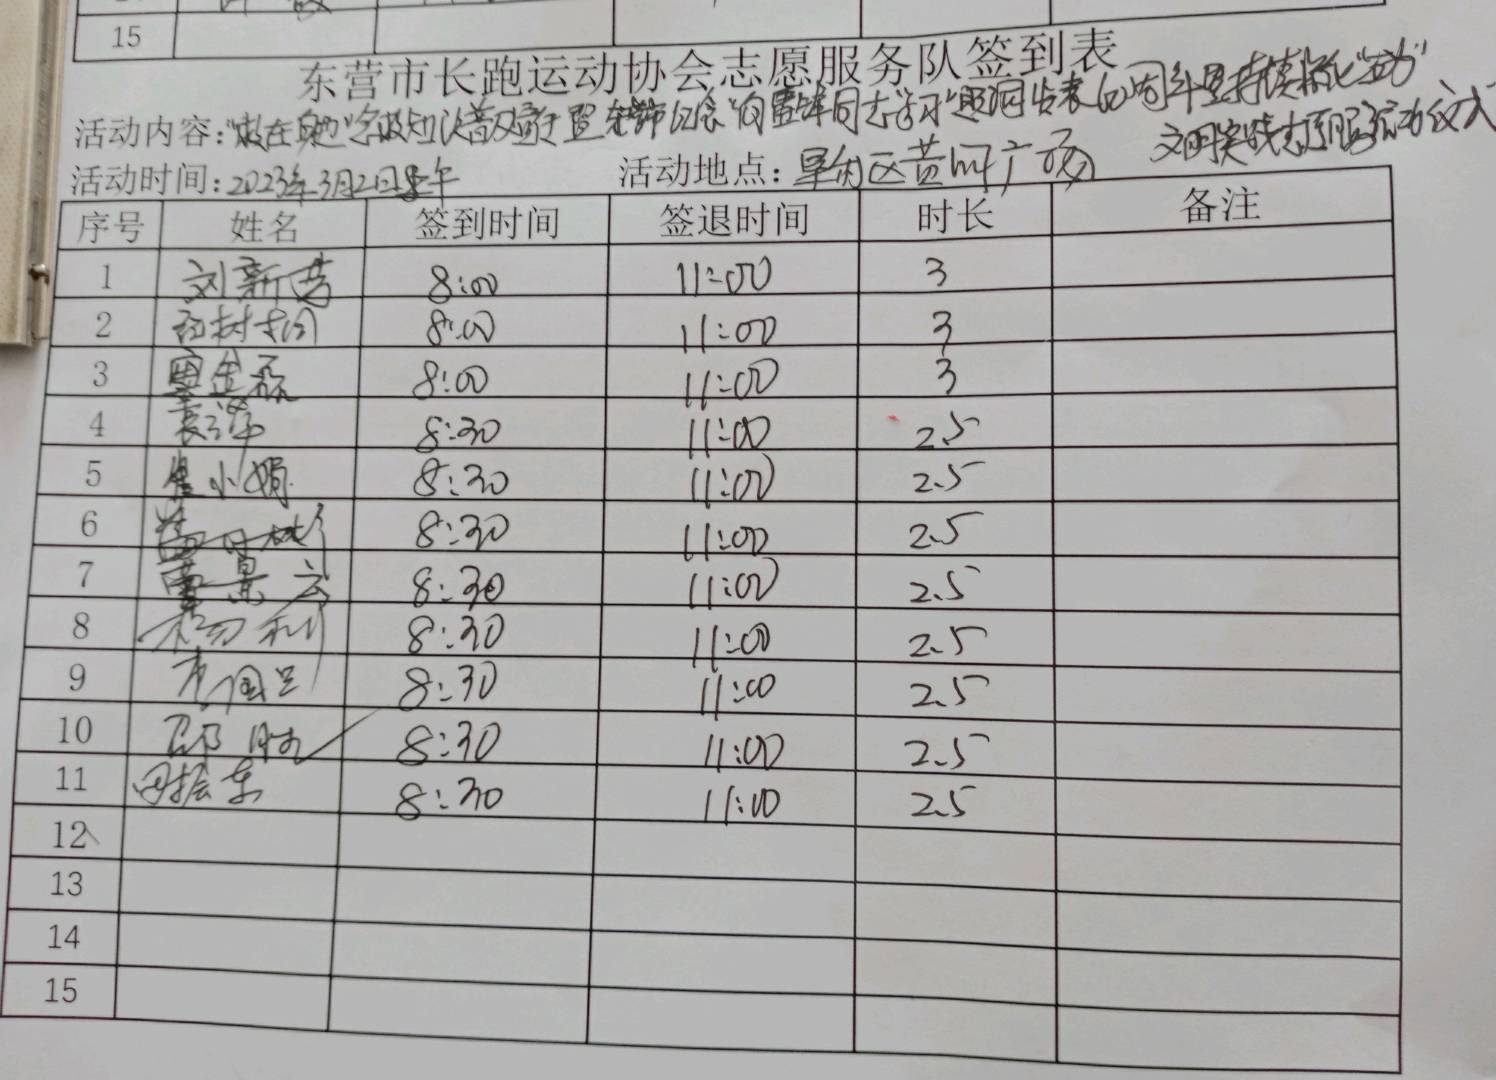 15
东营市长跑运动协会志愿服务队签到表
活动内容:"救在身边"急救知识普及暨东营市纪念"向雷锋同志学习"题词发表60周年暨持续深化"五动"
文明实践志愿服务活动仪式
活动时间:2023年3月2日上午 活动地点: 垦利区黄河广场
序号 姓名 签到时间 签退时间 时长 备注
1 刘新营 8:00 11:00 3
2 8:00 11:00 3
3 8:00 11:00 3
4 8:30 11:00 2.5
5 崔小娟 8:30 11:00 2.5
6 8:30 11:00 2.5
7 董景云 8:30 11:00 2.5
8 杨利 8:30 11:00 2.5
9 8:30 11:00 2.5
10 邵 8:30 11:00 2.5
11 田振东 8:30 11:00 2.5
12
13
14
15